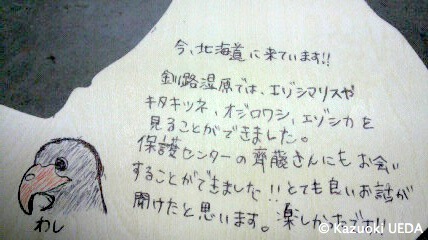 今、北海道に来ています!!
釧路湿原では、エゾシマリスや
キタキツネ、オジロワシ、エゾシカを
見ることができました。
保護センターの齊藤さんにもお会い
することができました!!とても良いお話が
聞けたと思います。楽しかったです!!
わし
© Kazuoki UEDA